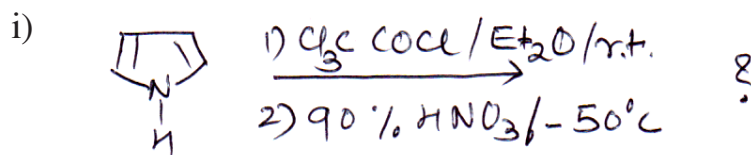 i)
1) Cl₃C COCl / Et₂O / r.t.
N
H
2) 90 % HNO₃ / -50°C
?